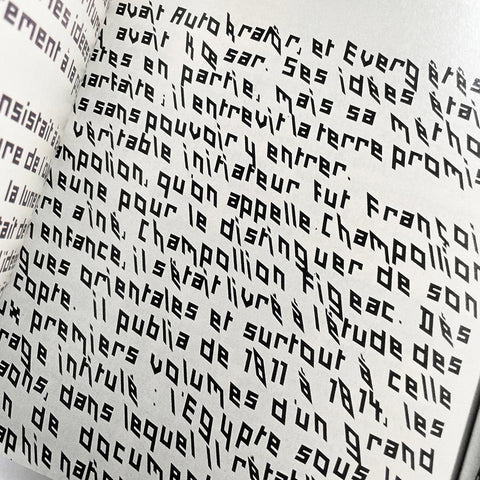 ries idées
rement à la
nsistait à
ure de l
la lune;
tait de
avait Autokratôr, et Evergêtês
avait Kœsar. Ses idées étai
tes en partie, mais sa métho
arfaite, il entrevit la terre promis
s sans pouvoir y entrer.
véritable initiateur fut Françoi
ampollion, qu'on appelle Champollion
eune pour le distinguer de son
re aîné, Champollion Figeac. Dès
n enfance, il s'était livré à l'étude des
gues orientales et surtout à celle
copte. Il publia de 1811 à 1814, les
ux premiers volumes d'un grand
rage intitulé : l'Egypte sous l
aons, dans lequel il rétabli
n de document
aphie natio